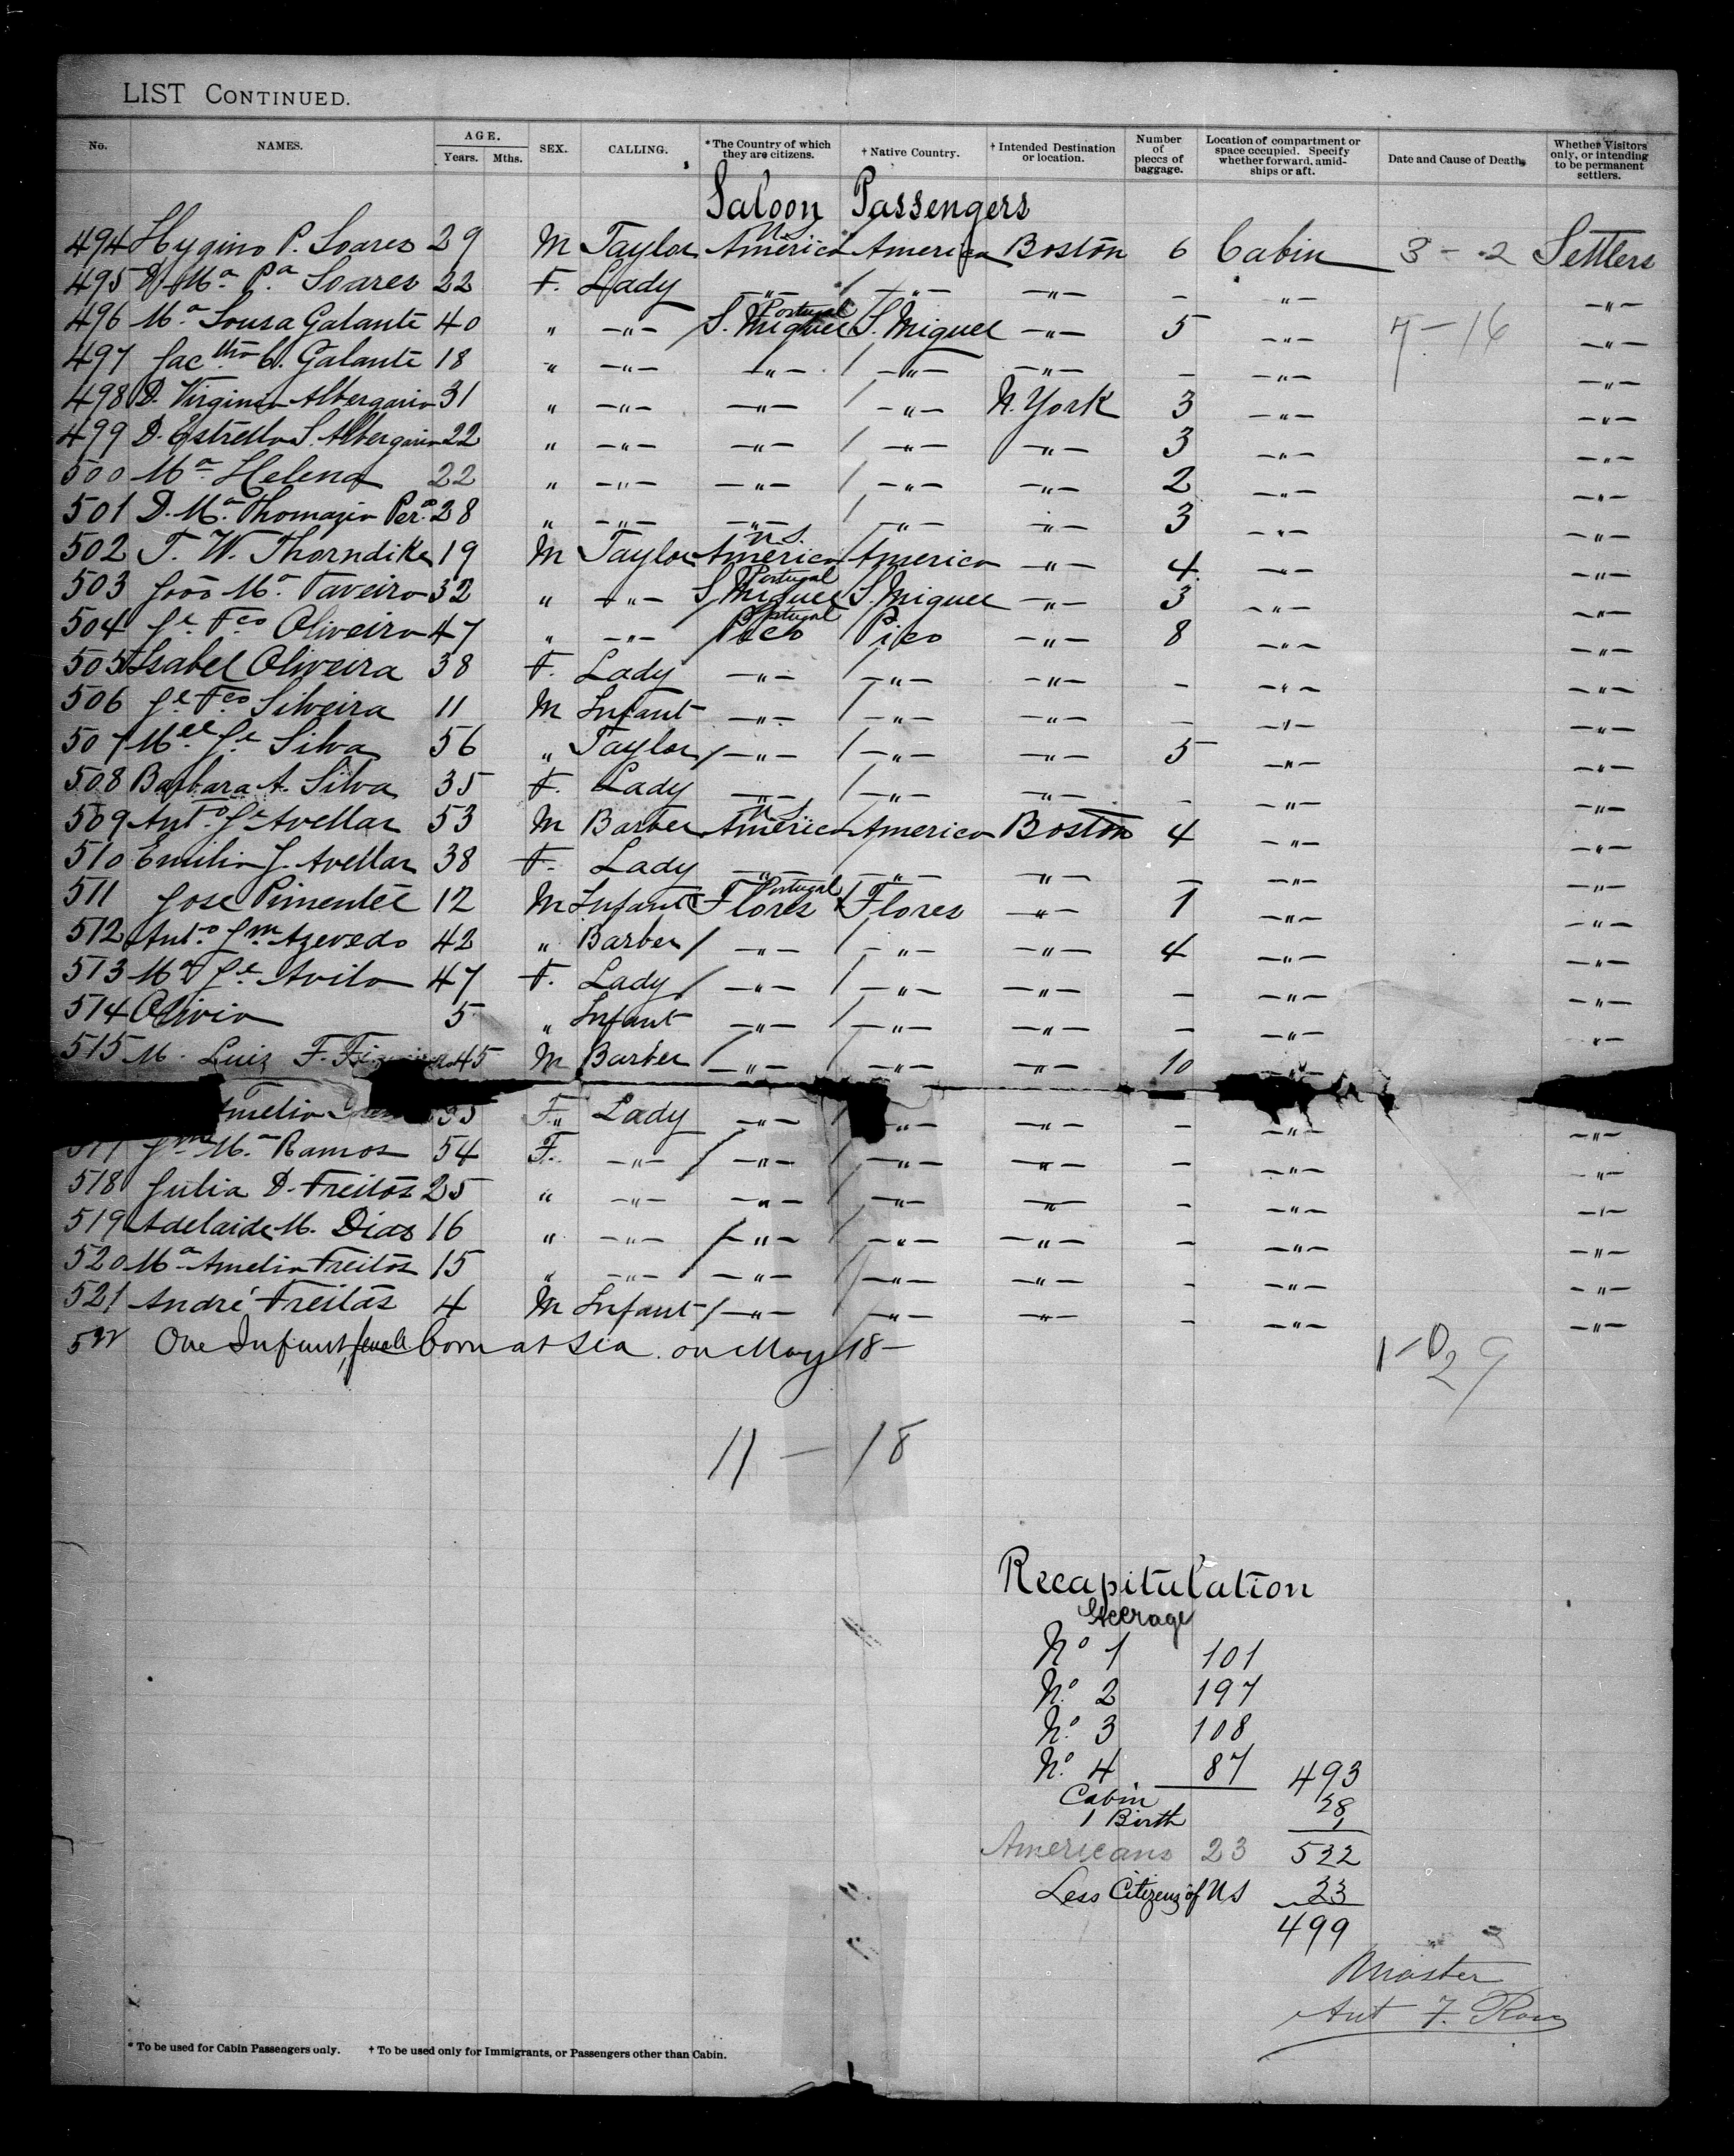 LIST CONTINUED.
No. NAMES. AGE. Years. Mths. SEX. CALLING. *The Country of which they are citizens. † Native Country. † Intended Destination or location. Number of pieces of baggage. Location of compartment or space occupied. Specify whether forward, amidships or aft. Date and Cause of Death. Whether Visitors only, or intending to be permanent settlers.
Saloon Passengers
494 Hygino P. Soares 29 M Taylor U.S. America America Boston 6 Cabin 3 - 2 Settlers
495 D. Ma. Pa Soares 22 F. Lady —"— —"— —"— - —"— —"—
496 Ma Sousa Galante 40 " —"— Portugal S. Miguel S. Miguel —"— 5 —"— 7 - 16 —"—
497 Jactha C. Galante 18 " —"— —"— —"— —"— - —"— —"—
498 D. Virginia Albergaria 31 " —"— —"— —"— N. York 3 —"— —"—
499 D. Estrella S. Albergaria 22 " —"— —"— —"— —"— 3 —"— —"—
500 Ma Helena 22 " —"— —"— —"— —"— 2 —"— —"—
501 D. Ma. Thomazia Pera 28 " —"— —"— —"— —"— 3 —"— —"—
502 T. W. Thorndike 19 M Taylor U.S. America America —"— 4 —"— —"—
503 João Ma. Taveira 32 " —"— Portugal S. Miguel S. Miguel —"— 3 —"— —"—
504 Je Fco Oliveira 47 " —"— Portugal Pico Pico —"— 8 —"— —"—
505 Isabel Oliveira 38 F. Lady —"— —"— —"— - —"— —"—
506 Je Fco Silveira 11 M Infant —"— —"— —"— - —"— —"—
507 Mel Je Silva 56 " Taylor —"— —"— —"— 5 —"— —"—
508 Barbara A. Silva 35 F. Lady —"— —"— —"— - —"— —"—
509 Anto. Je Avellar 53 M Barber U.S. America America Boston 4 —"— —"—
510 Emilia J. Avellar 38 F. Lady —"— —"— —"— - —"— —"—
511 Jose Pimentel 12 M Infant Portugal Flores Flores —"— 1 —"— —"—
512 Anto Jm Azevedo 42 " Barber —"— —"— —"— 4 —"— —"—
513 Ma Je Avila 47 F. Lady —"— —"— —"— - —"— —"—
514 Olivia 5 " Infant —"— —"— —"— - —"— —"—
515 M. Luiz F. 45 M Barber —"— —"— —"— 10 —"—
Amelia 35 F. Lady —"— —"— —"— - —"— —"—
517 Ma Ramos 54 F. —"— —"— —"— —"— - —"— —"—
518 Julia D. Freitas 25 " —"— —"— —"— —"— - —"— —"—
519 Adelaide M. Dias 16 " —"— —"— —"— —"— - —"— —"—
520 Ma Amelia Freitas 15 " —"— —"— —"— —"— - —"— —"—
521 André Freitas 4 M Infant —"— —"— —"— - —"— —"—
522 One Infant, female born at Sea on May 18 —
1 - 0
29
11 — 18
Recapitulation
Steerage
No 1 101
No. 2 197
No. 3 108
No. 4 87 493
Cabin 28
1 Birth 1
Americans 23 522
Less Citizens of US 23
499
Master
Ant F.
* To be used for Cabin Passengers only. † To be used only for Immigrants, or Passengers other than Cabin.